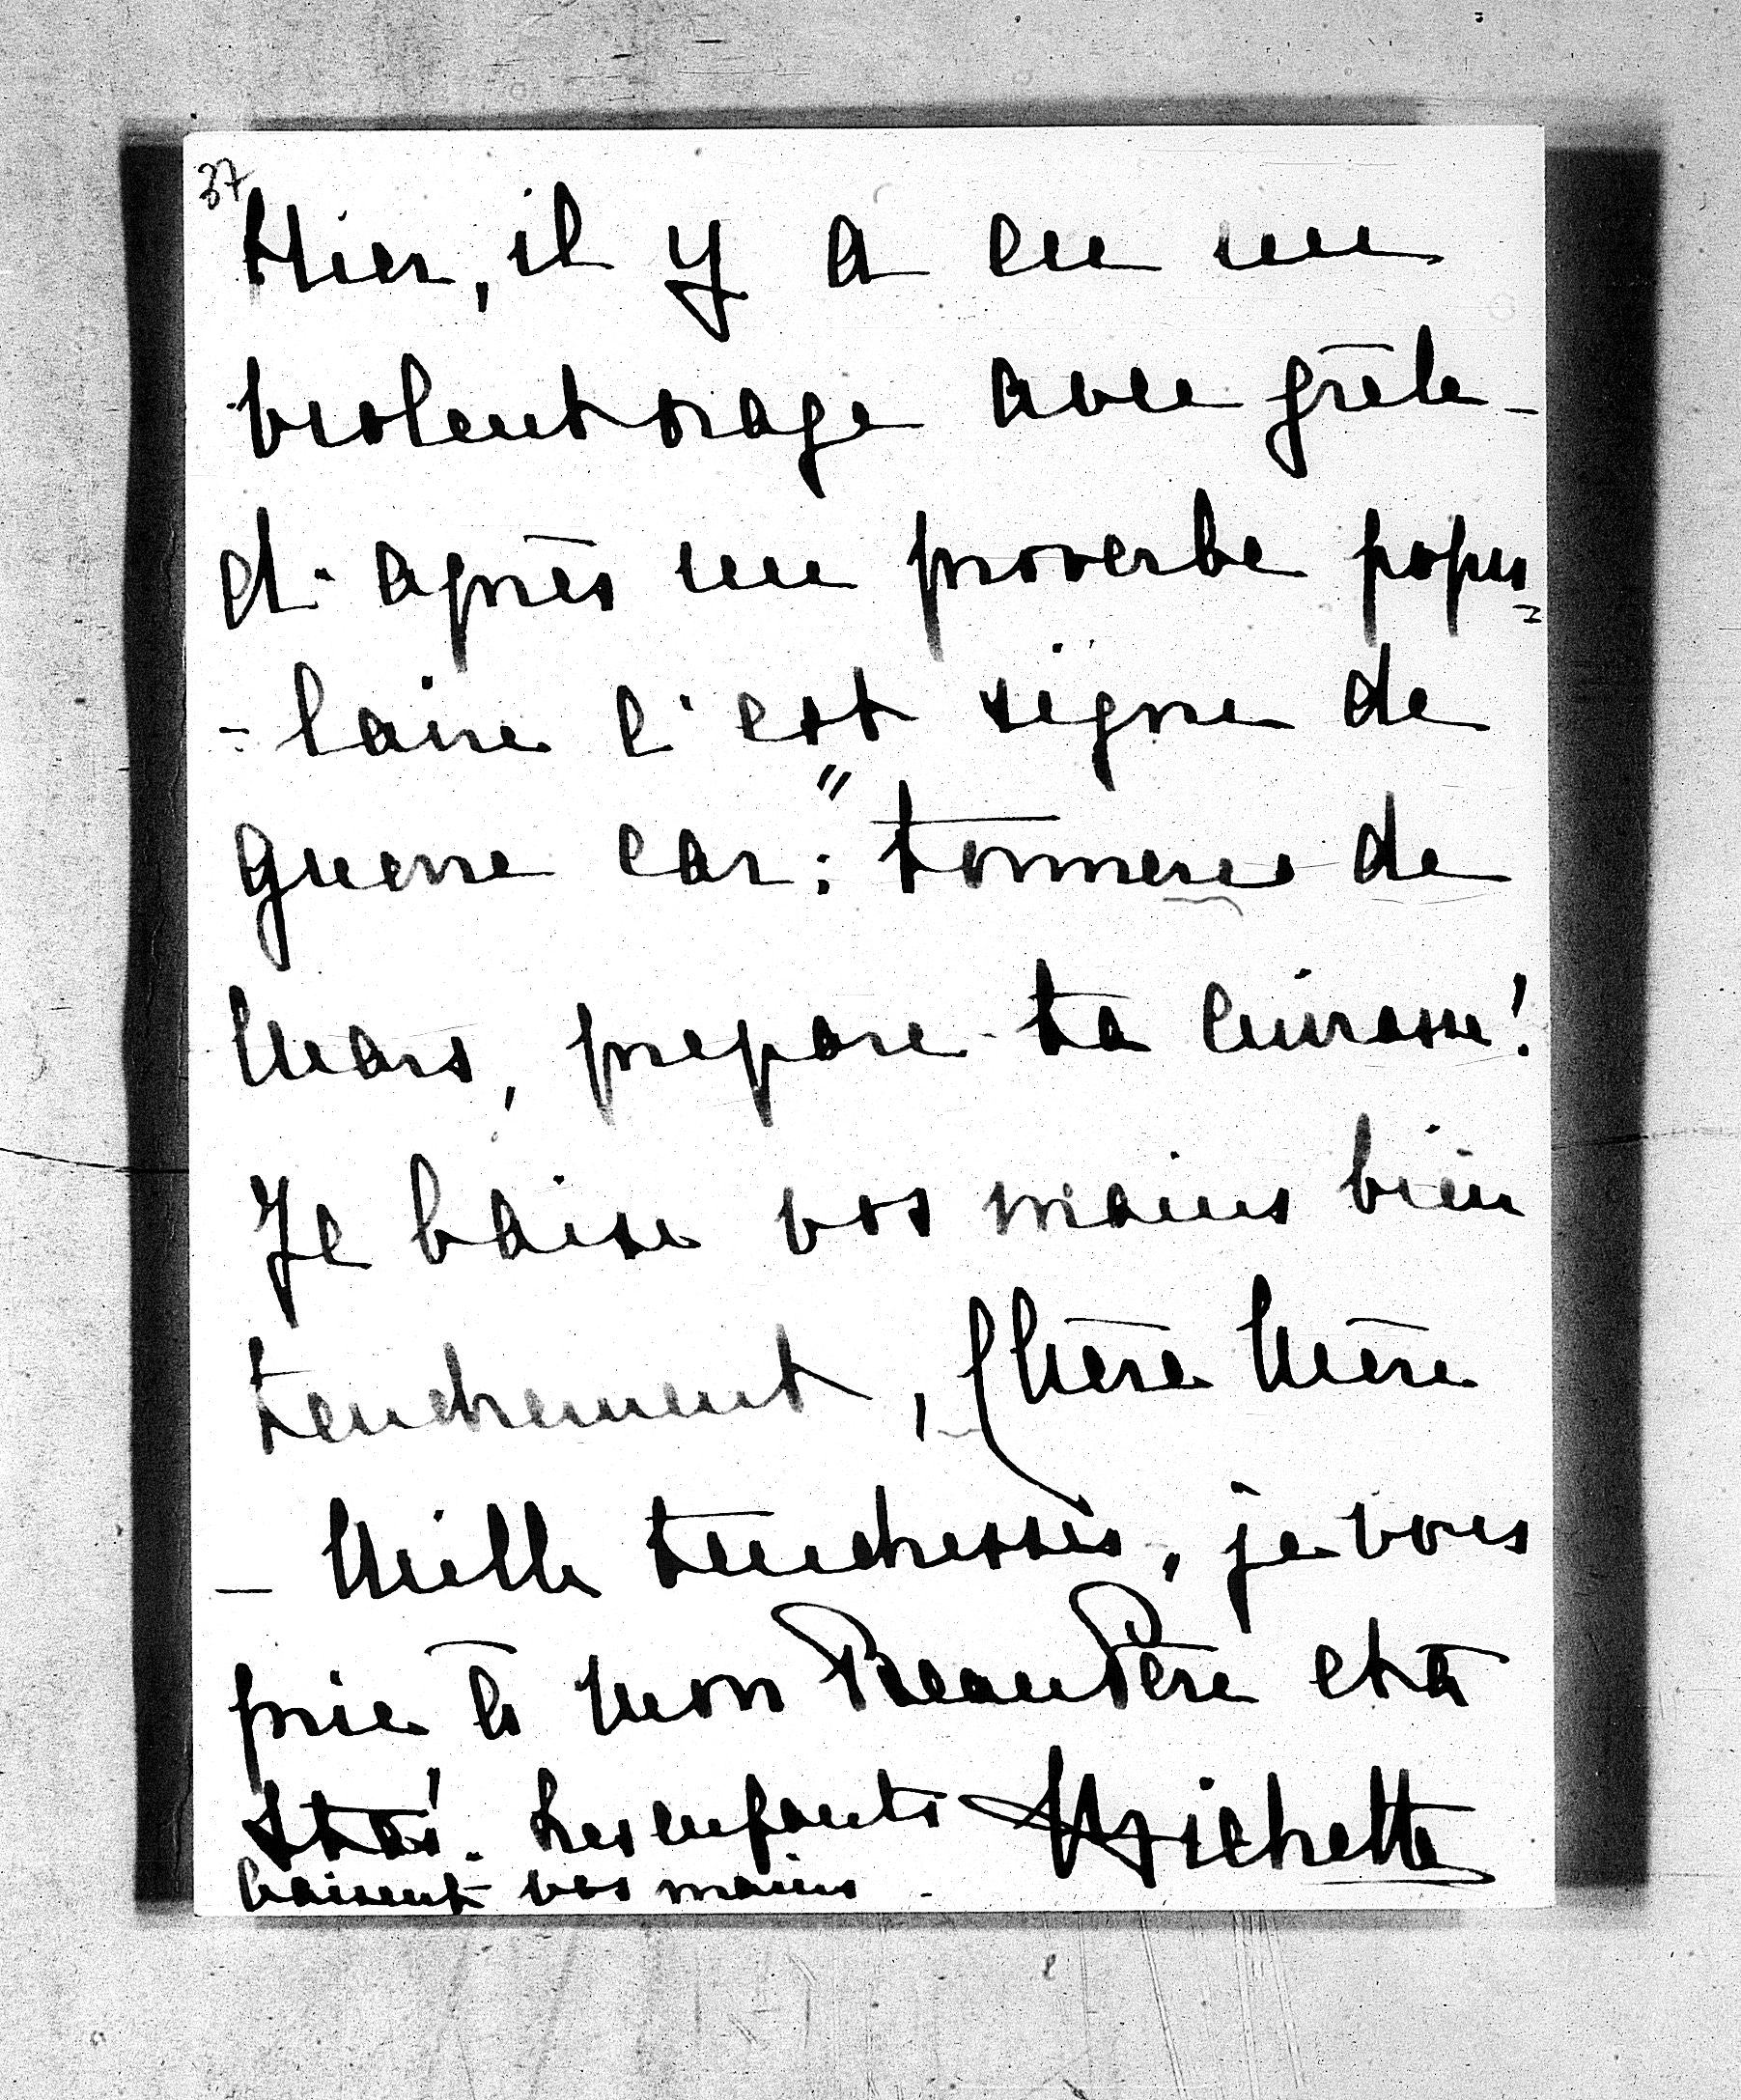 37
Hier, il y a eu un
violent orage avec grêle -
d'après un proverbe popu
- laire c'est signe de
guerre car : "tonnerre de
Mars, prepare ta cuirasse!
Je baise vos mains bien
tendrement, Chère Mère
- Mille tendresses, je vous
prie à mon Beau Père et à
Stas! Les enfants Michette
baisent vos mains.